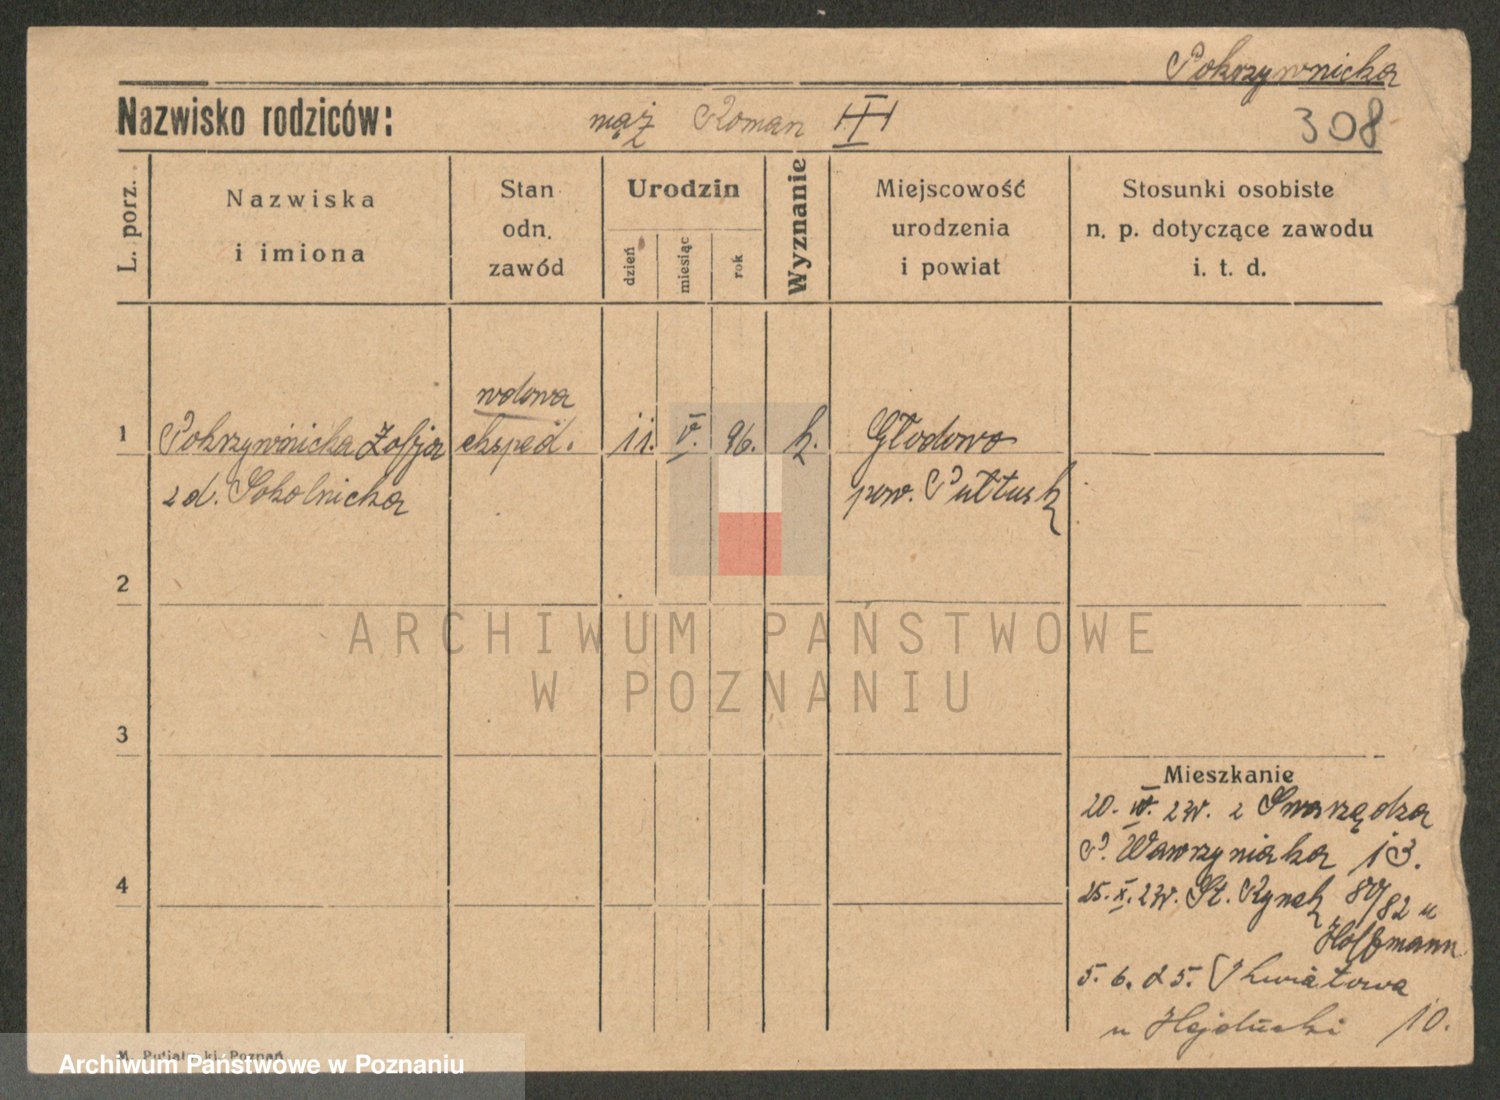 Pokrzywnicka
Nazwisko rodziców: mąż Roman
308
L. porz.
Nazwiska
i imiona
Stan
odn.
zawód
Urodzin
dzień
miesiąc
rok
Wyznanie
Miejscowość
urodzenia
i powiat
Stosunki osobiste
n. p. dotyczące zawodu
i. t. d.
wdowa
1 Pokrzywnicka Zofja eksped. 11. V. 96. k. Głodowo
zd. Sokolnicka pow. Pułtusk
2
ARCHIWUM PAŃSTWOWE
W POZNANIU
3
Mieszkanie
20. 23. z Swarzędza
P. Wawrzyniaka 13.
4
25. X. 23. St. Rynek 80/82 u
Hoffmann
5. 6. 25. Kwiatowa
u Hejduski 10.
Archiwum Państwowe w Poznaniu